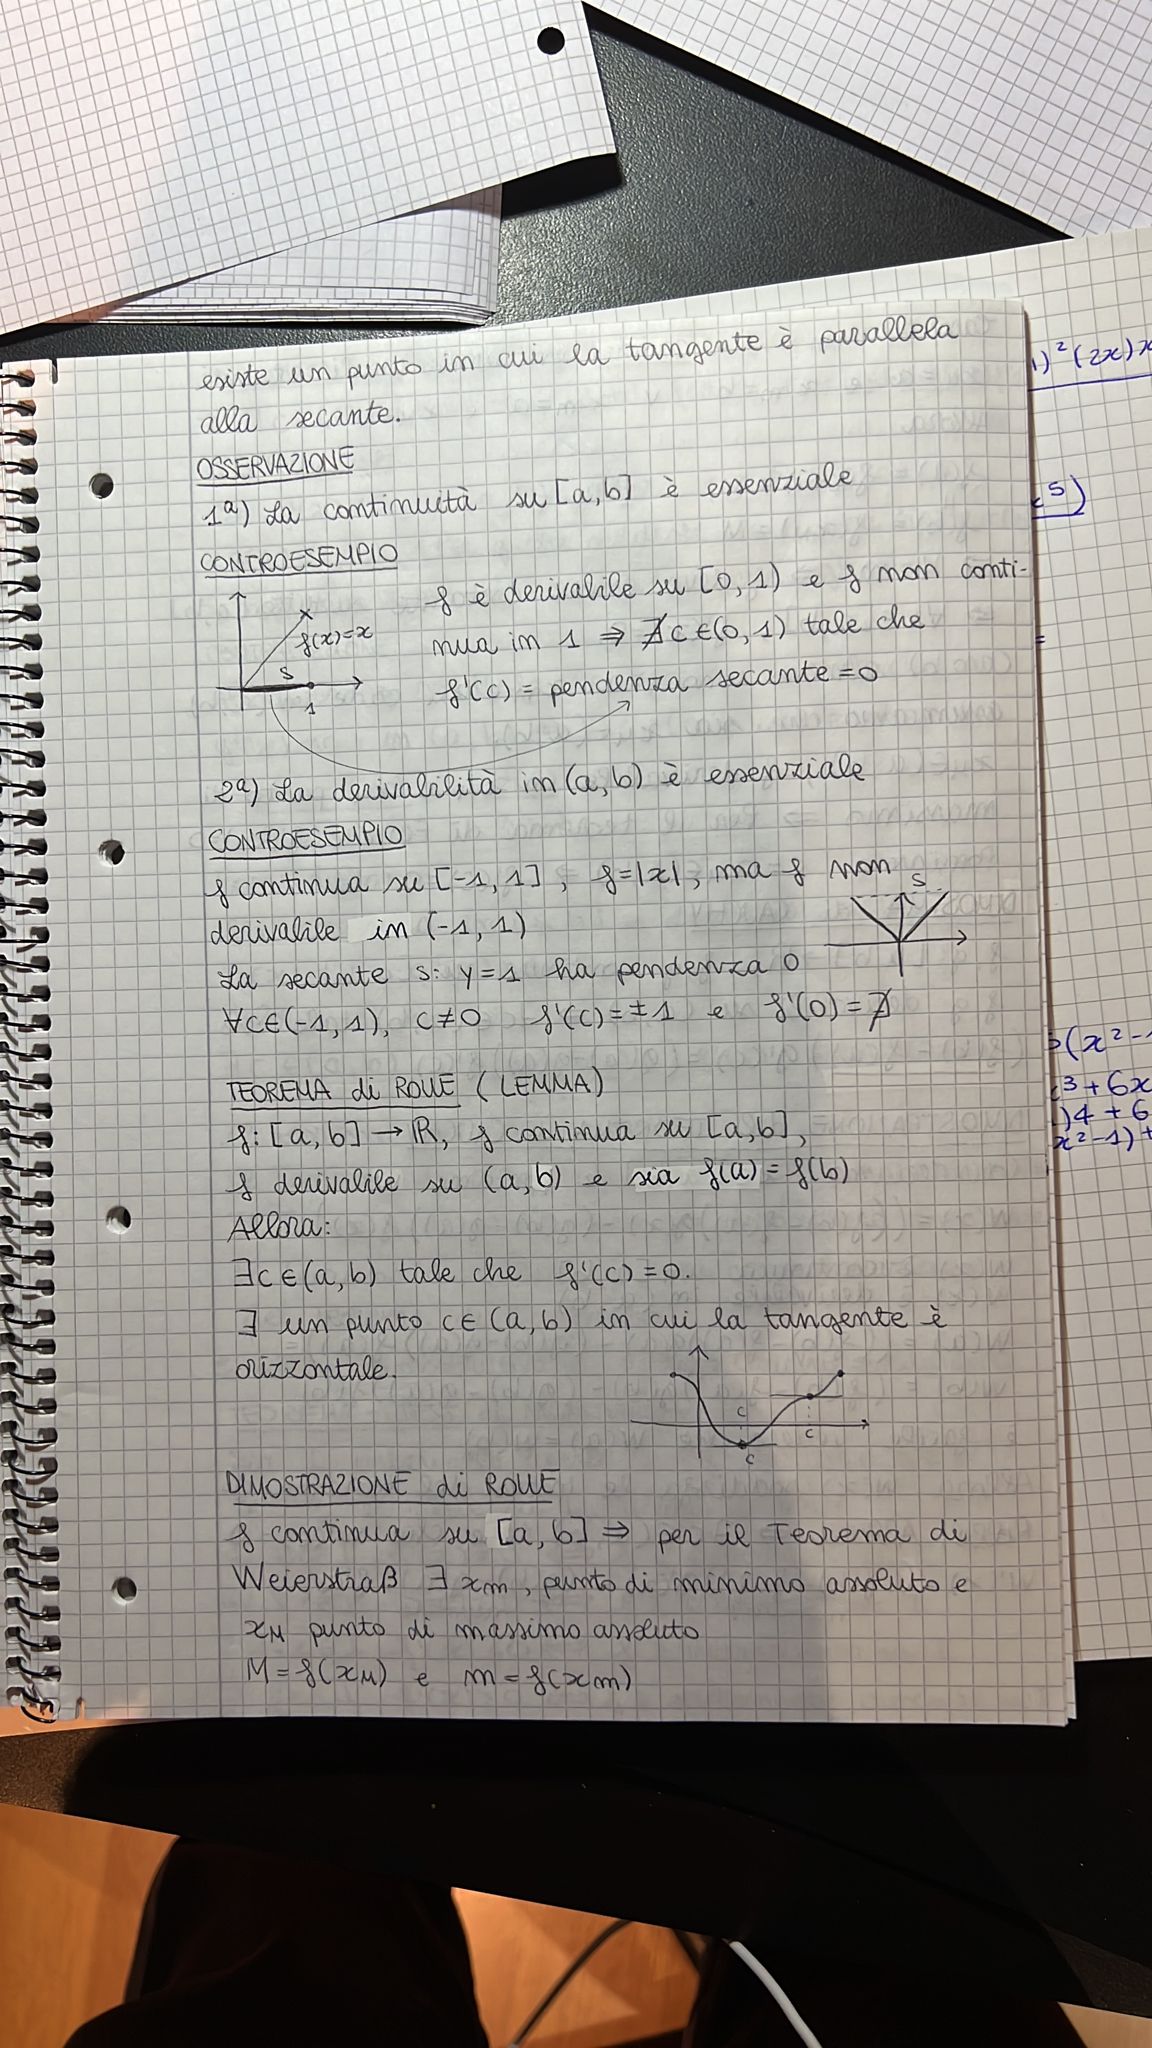 esiste un punto in cui la tangente è parallela
alla secante.
OSSERVAZIONE
1ª) La continuità su [a,b] è essenziale
CONTROESEMPIO
f è derivabile su [0,1) e f non conti-
nua in 1 ⇒ ∄c∈(0,1) tale che
f'(c) = pendenza secante = 0
f(x)=x
s
1
2ª) La derivabilità in (a,b) è essenziale
CONTROESEMPIO
f continua su [-1,1], f=|x|, ma f non
derivabile in (-1,1)
s
La secante s: y=1 ha pendenza 0
∀c∈(-1,1), c≠0 f'(c)=±1 e f'(0)=∄
TEOREMA di ROLLE (LEMMA)
f: [a,b] → ℝ, f continua su [a,b],
f derivabile su (a,b) e sia f(a)=f(b)
Allora:
∃c∈(a,b) tale che f'(c)=0.
∃ un punto c∈(a,b) in cui la tangente è
orizzontale.
c
c
c
DIMOSTRAZIONE di ROLLE
f continua su [a,b] ⇒ per il Teorema di
Weierstraß ∃ xm, punto di minimo assoluto e
xM punto di massimo assoluto
M=f(xM) e m=f(xm)
)²(2x)x
5)
=
(x²-1
3+6x
)4+6
x²-1)+